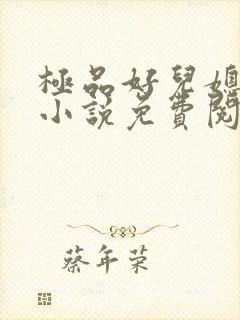 極品好兒媳
小說免費閱
蔡年荣